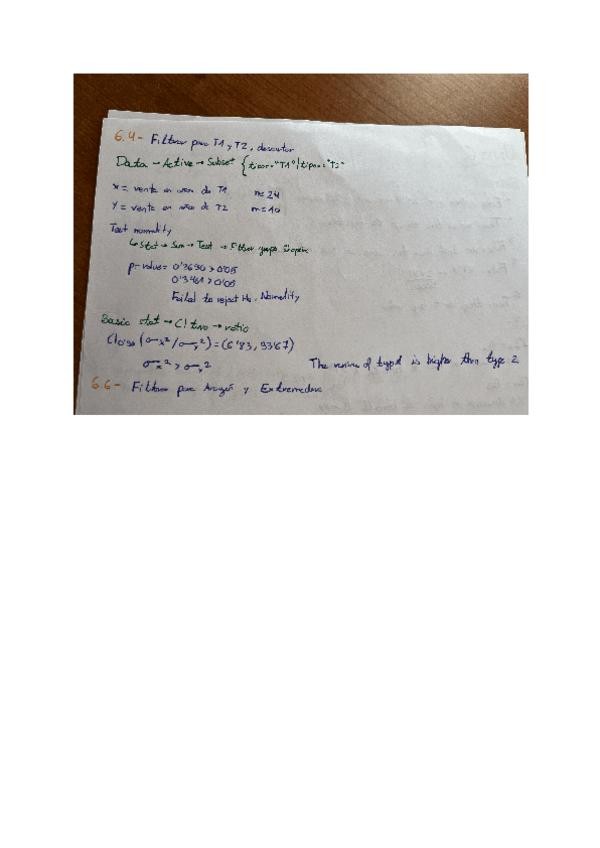 6.4- Filtrar para T1 y T2, descartar
Data → Active → Subset { tipo=="T1" | tipo=="T2"
X = venta en area de T1 n=24
Y = venta en area de T2 m=10
Test normality
↳ Stat → Sum → Test → by group
p-value = 0'3690 > 0'05
0'3461 > 0'05
Failed to reject H₀. Normality
Basic stat → CI two → ratio
CI (σx²/σy²) = (6'83, 93'67)
σx² > σy² The of type 1 is higher than type 2
6.6- Filtrar para Aragón y Extremadura